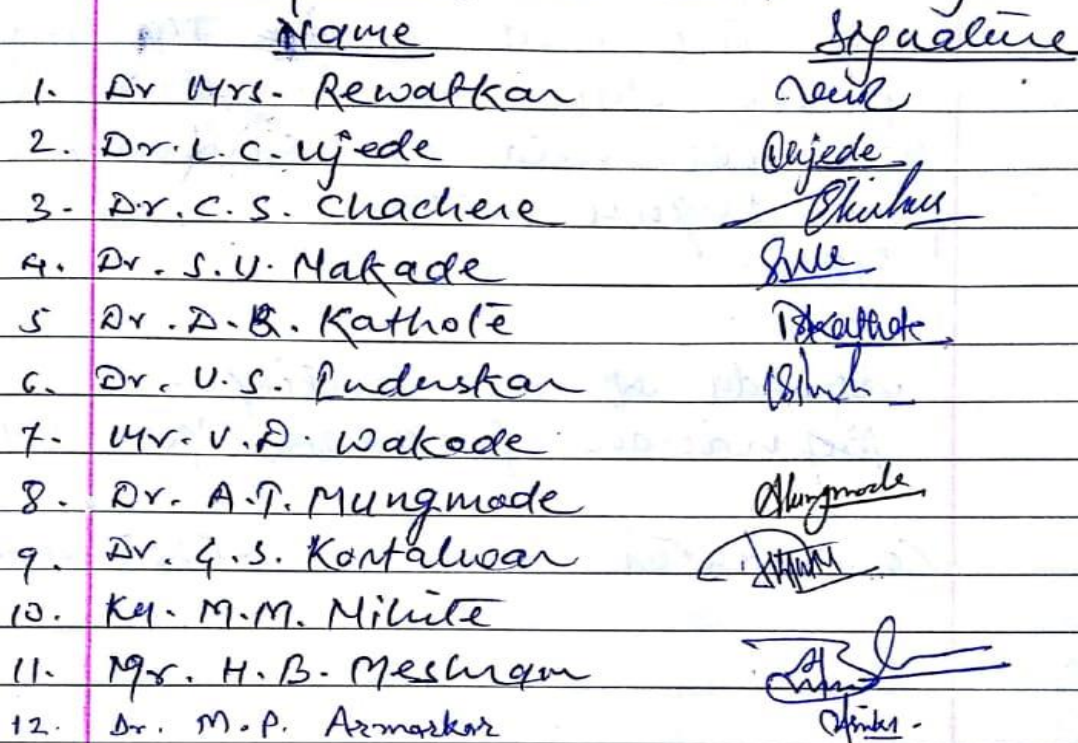 Name Signature
1. Dr Mrs. Rewatkar
2. Dr. L. C. Ujede Ujede
3. Dr. C. S. Chachere
4. Dr. S. V. Makade
5 Dr. D. B. Kathole Kathole
6. Dr. V. S. Indurskar
7. Mr. V. D. Wakode
8. Dr. A. T. Mungmode AMungmode
9. Dr. G. S. Kontalwar
10. Ku. M. M. Nikite
11. Mr. H. B. Meshram
12. Dr. M. P. Armarkar